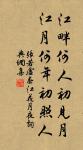 江畔何人初見月
江月何年初照人
若虛春江花月夜詞